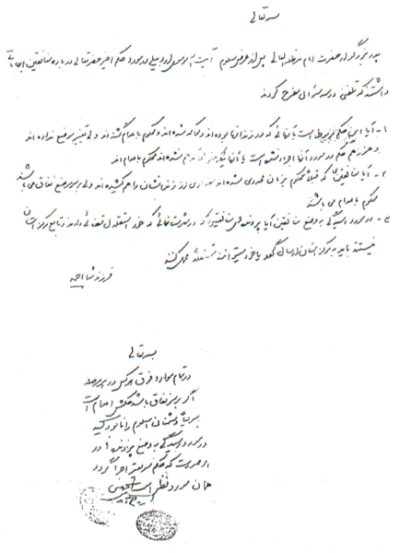 بسمه تعالی
پدر بزرگوار حضرت امام مدظله العالی پس از عرض سلام آیت الله موسوی اردبیلی در مورد حکم اخیر حضرتعالی درباره منافقین ابهاماتی
داشتند که تلفنی در سه سؤال مطرح کردند
۱ - آیا این حکم مربوط است به آنهائی که در زندانها بوده‌اند و محاکمه شده‌اند و محکوم به اعدام گشته‌اند ولی تغییر موضع نداده‌اند
و هنوز هم حکم در مورد آنها اجرا نشده است یا آنها که حتی محاکمه هم نشده‌اند محکوم به اعدام‌اند
۲ - آیا منافقین که محکوم به زمان محدودی شده‌اند و مقداری از زندانشان را هم کشیده‌اند ولی بر سر موضع نفاق می‌باشند
محکوم به اعدام می‌باشند
۳ - در مورد رسیدگی به وضع منافقین آیا پرونده‌های منافقینی که در شهرستانهائی که خود استقلال قضائی دارند و تابع مرکز استان
نیستند باید به مرکز استان ارسال گردد یا خود میتوانند مستقلاً عمل کنند
فرزند شما احمد
بسمه تعالی
در تمام موارد فوق هر کس در هر مرحله
اگر بر سر نفاق باشد حکمش اعدام است
سریعاً دشمنان اسلام را نابود کنید
در مورد رسیدگی به وضع پرونده‌ها در
هر صورت که حکم سریعتر اجرا گردد
همان مورد نظر است